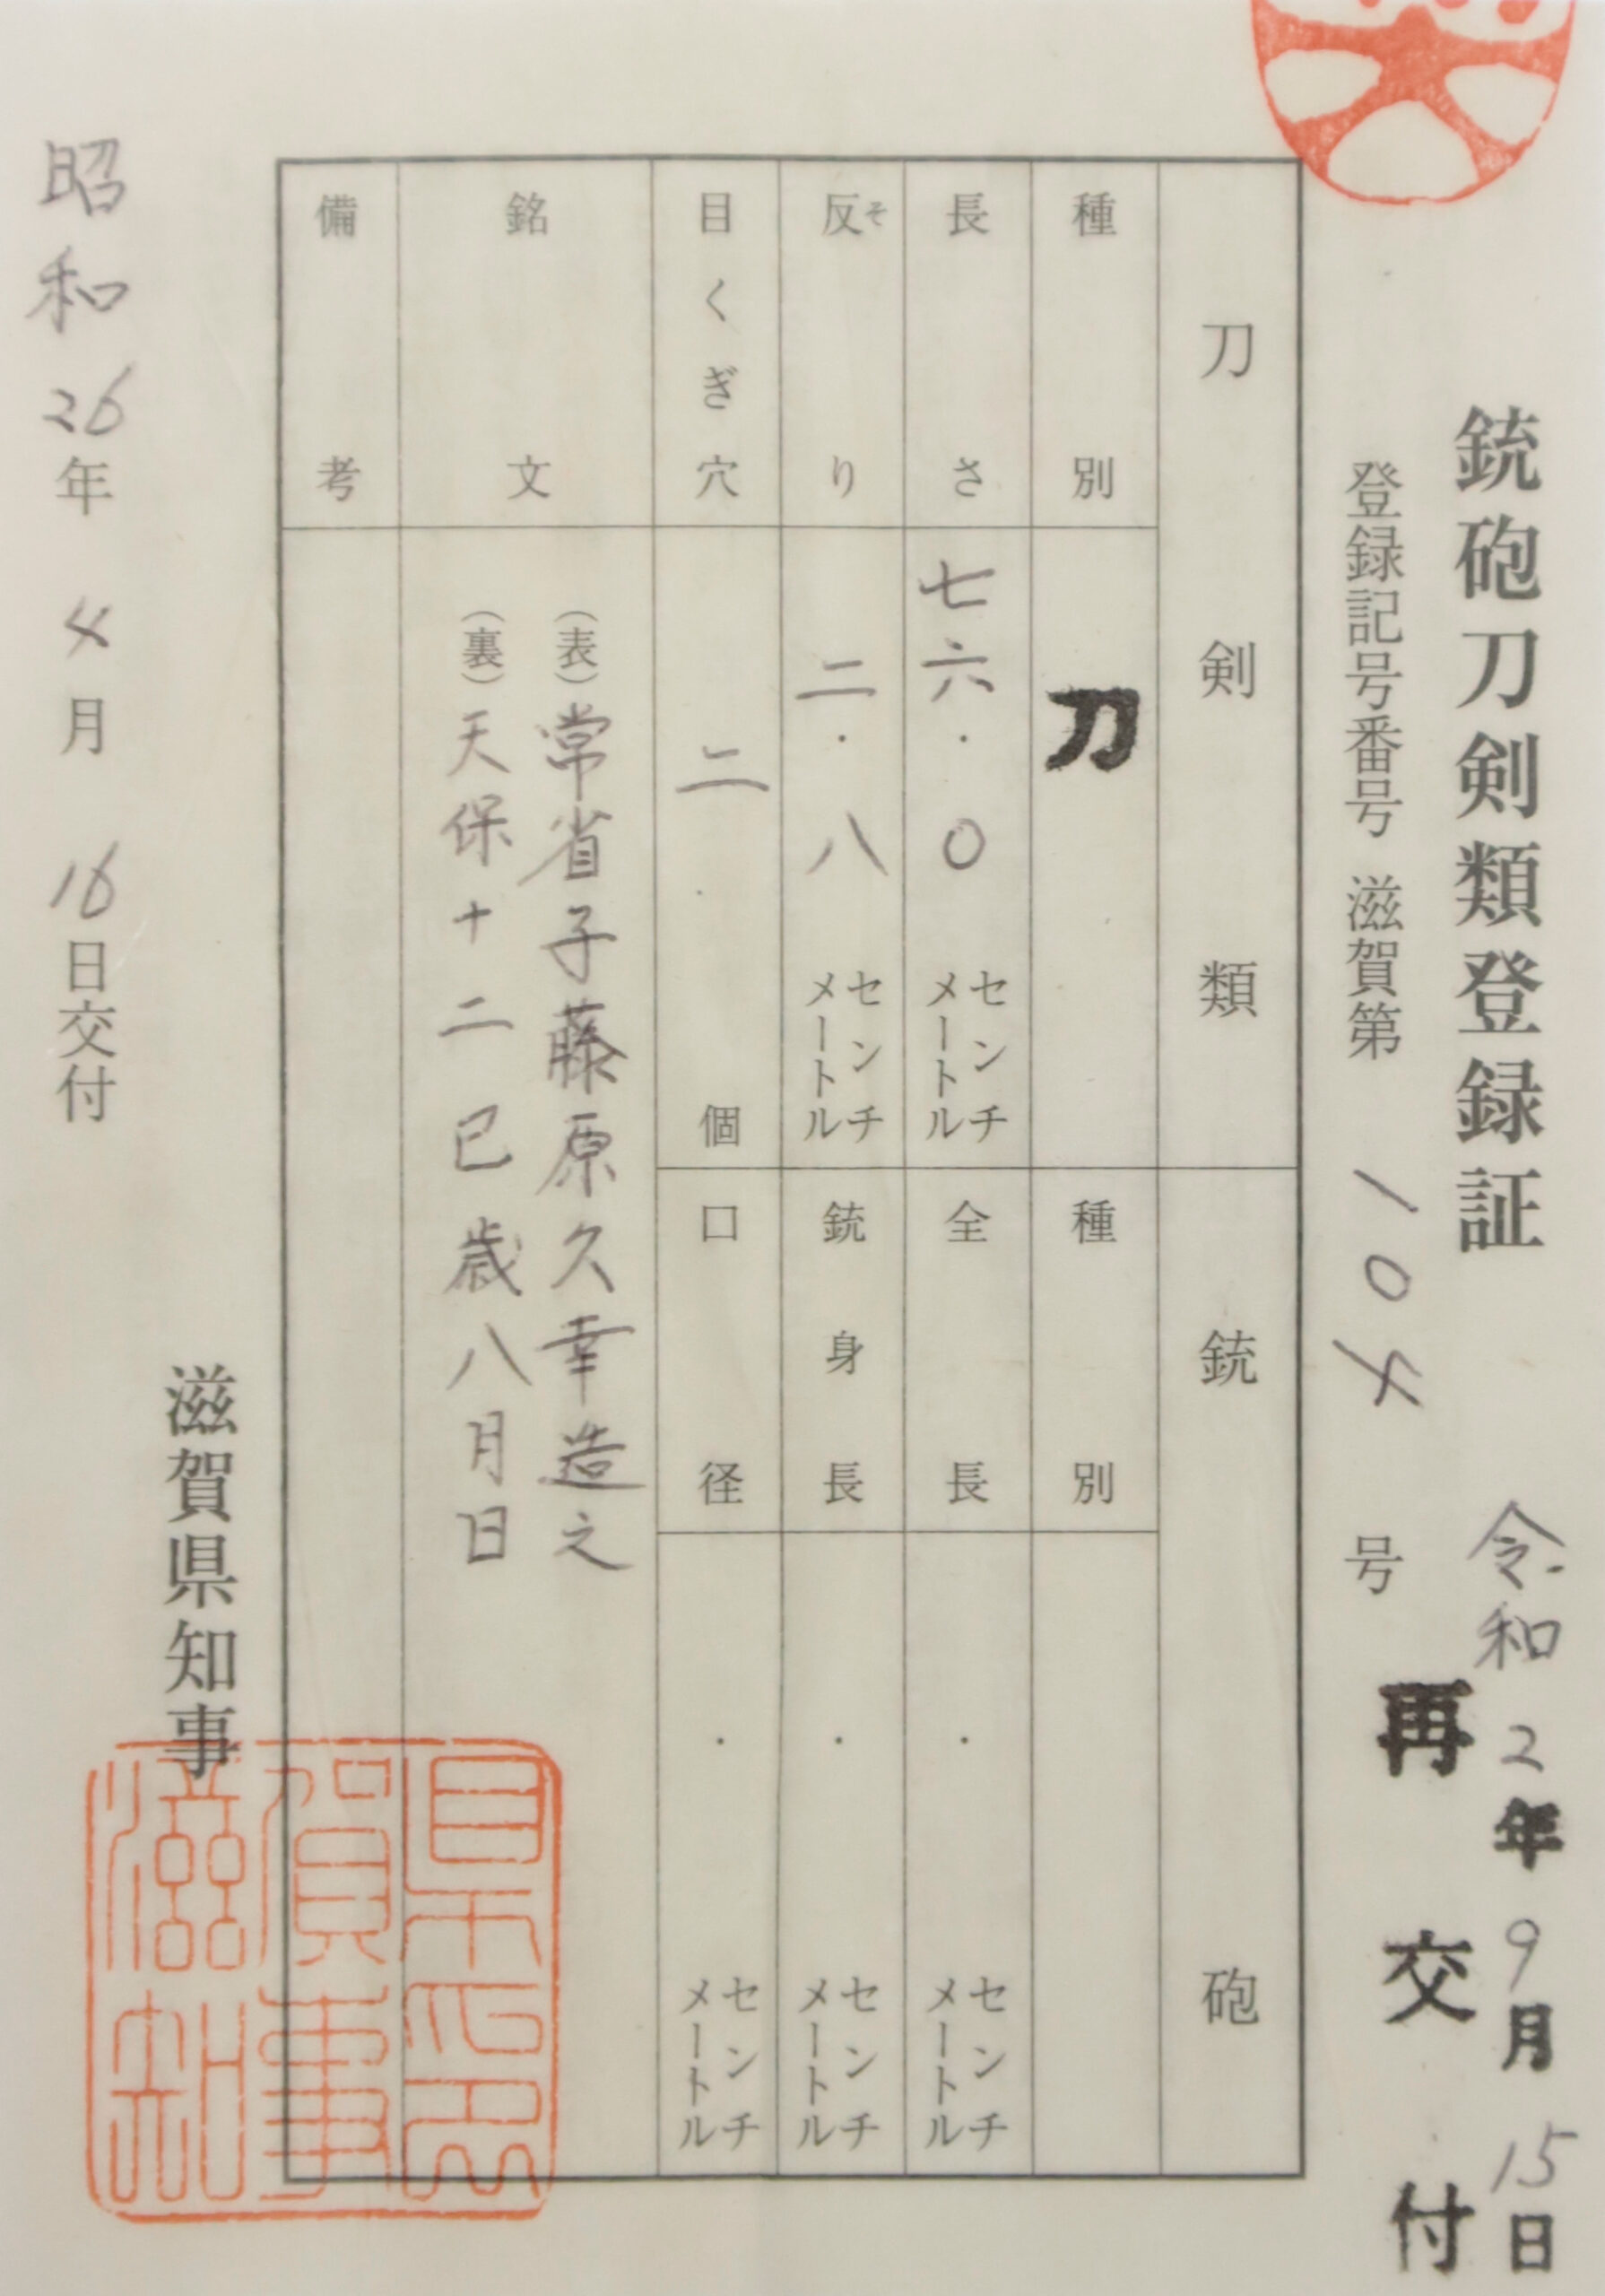 銃砲刀剣類登録証
令和2年9月15日
再交付
登録記号番号 滋賀第 104 号
刀剣類
銃砲
種別 刀
種別
長さ 七六.〇 センチメートル
全長 . センチメートル
反り そ 二.八 センチメートル
銃身長 . センチメートル
目くぎ穴 二 個
口径 . センチメートル
銘文
(表)常省子藤原久幸造之
(裏)天保十二巳歳八月日
備考
滋賀県知事
昭和26年4月16日交付
滋賀県知事